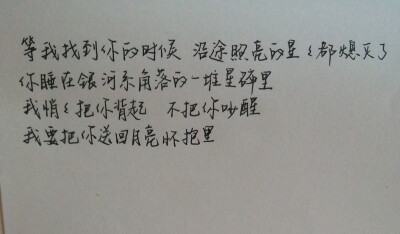 等我找到你的时候 沿途照亮的星々都熄灭了
你睡在银河系角落的一堆星碎里
我悄々把你背起 不把你吵醒
我要把你送回月亮怀抱里